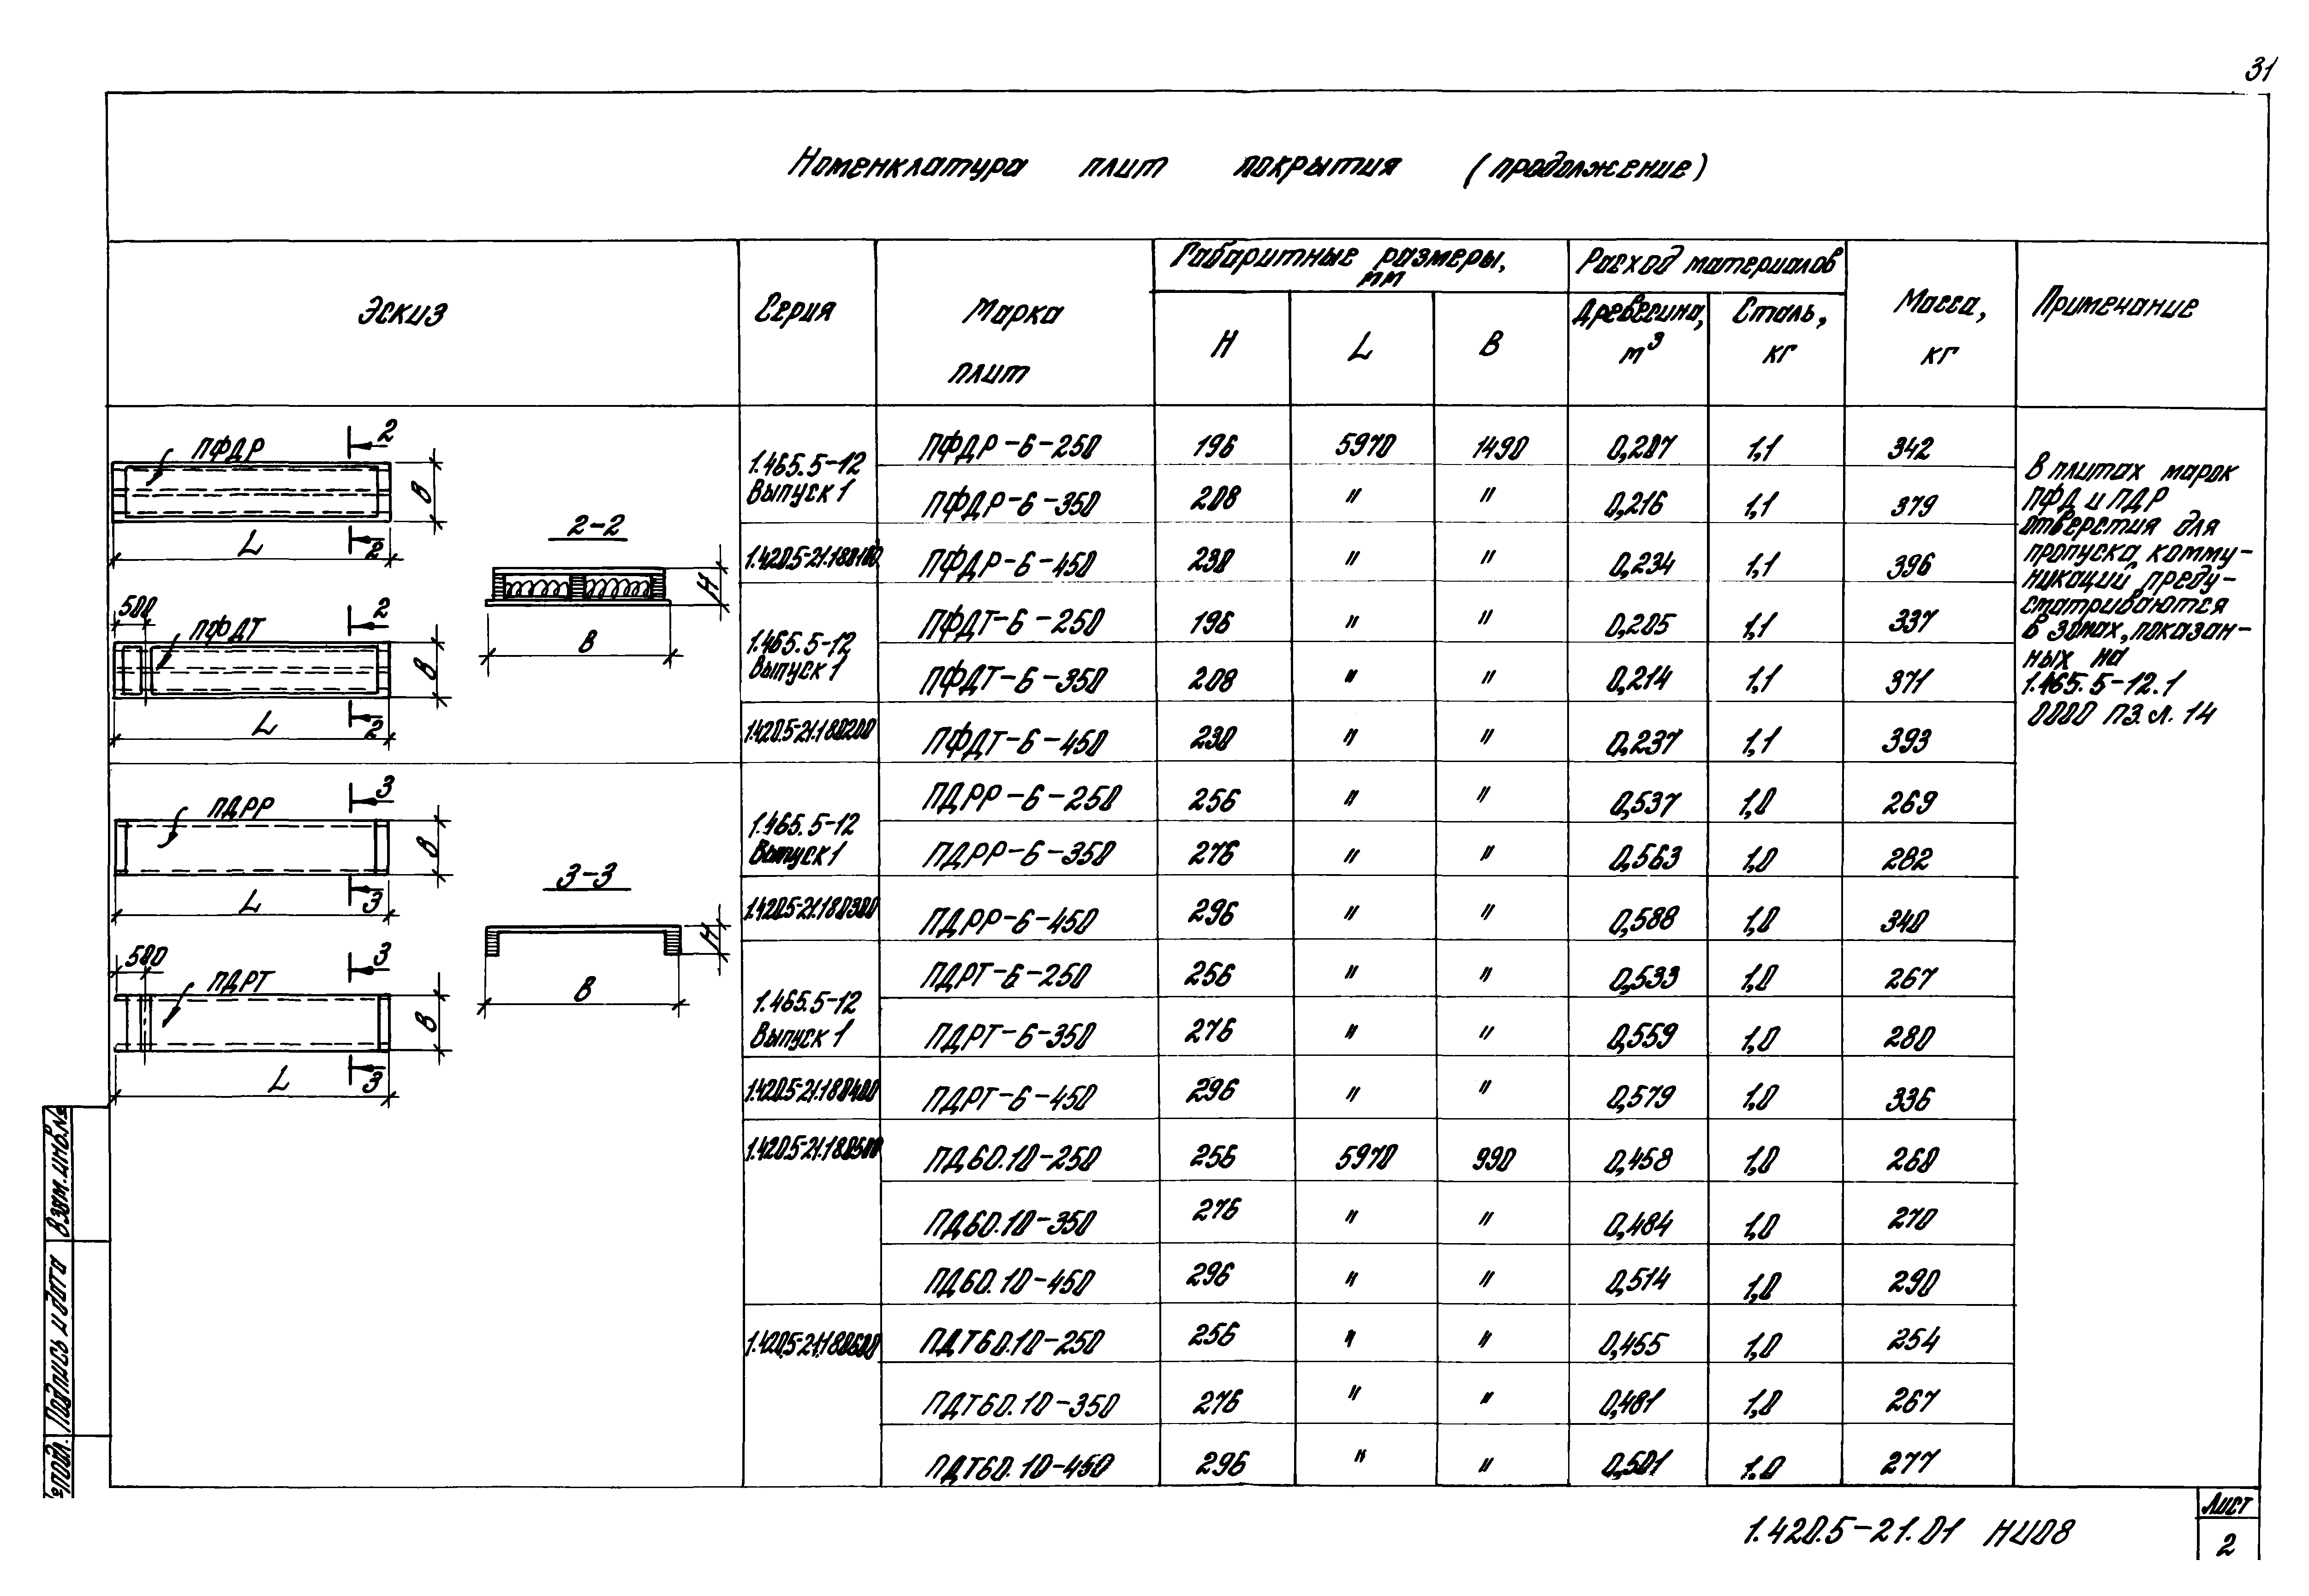 31
Номенклатура плит покрытия (продолжение)
Эскиз
Серия
Марка
плит
Габаритные размеры,
мм
H
L
B
Расход материалов
Древесина,
м³
Сталь,
кг
Масса,
кг
Примечание
ПФДР
2
B
L
2
500
ПФДТ
2
B
L
2
2-2
H
B
ПДРР
3
B
L
3
500
ПДРТ
3
B
L
3
3-3
H
B
1.465.5-12
Выпуск 1
ПФДР-6-250 196 5970 1490 0,207 1,1 342
ПФДР-6-350 208 " " 0,216 1,1 379
1.420.5-21.180100 ПФДР-6-450 230 " " 0,234 1,1 396
1.465.5-12
Выпуск 1
ПФДТ-6-250 196 " " 0,205 1,1 337
ПФДТ-6-350 208 " " 0,214 1,1 371
1.420.5-21.180200 ПФДТ-6-450 230 " " 0,237 1,1 393
1.465.5-12
Выпуск 1
ПДРР-6-250 256 " " 0,537 1,0 269
ПДРР-6-350 276 " " 0,563 1,0 282
1.420.5-21.180300 ПДРР-6-450 296 " " 0,588 1,0 340
1.465.5-12
Выпуск 1
ПДРТ-6-250 256 " " 0,533 1,0 267
ПДРТ-6-350 276 " " 0,559 1,0 280
1.420.5-21.180400 ПДРТ-6-450 296 " " 0,579 1,0 336
1.420.5-21.180500 ПД60.10-250 256 5970 990 0,458 1,0 260
ПД60.10-350 276 " " 0,484 1,0 270
ПД60.10-450 296 " " 0,514 1,0 290
1.420.5-21.180600 ПДТ60.10-250 256 " " 0,455 1,0 254
ПДТ60.10-350 276 " " 0,481 1,0 267
ПДТ60.10-450 296 " " 0,501 1.0 277
В плитах марок
ПФД и ПДР
отверстия для
пропуска комму-
никаций преду-
сматриваются
в зонах, показан-
ных на
1.465.5-12.1
0000 ПЗ.л.14
Взам.инв.№
Подпись и дата
подл.
1.420.5-21.01 НИ08
Лист
2